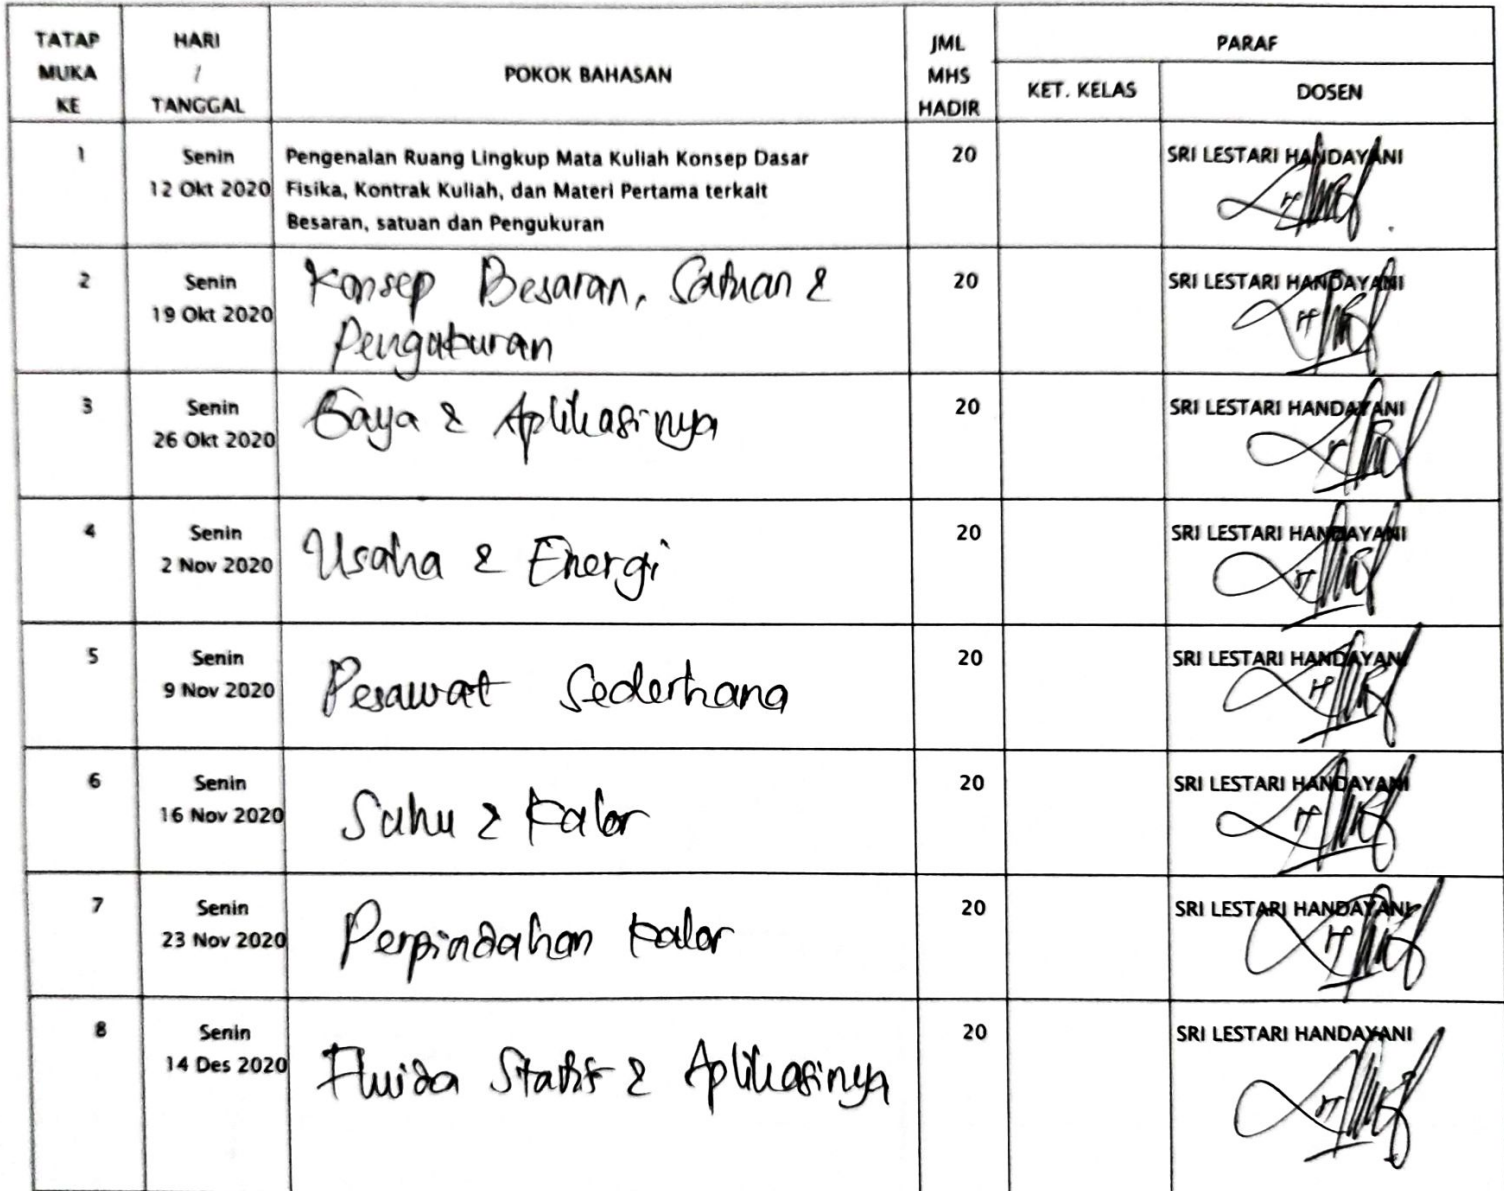 TATAP MUKA KE HARI / TANGGAL POKOK BAHASAN JML MHS HADIR PARAF
KET. KELAS DOSEN
1 Senin 12 Okt 2020 Pengenalan Ruang Lingkup Mata Kuliah Konsep Dasar 20 SRI LESTARI HANDAYANI
Fisika, Kontrak Kuliah, dan Materi Pertama terkait
Besaran, satuan dan Pengukuran
2 Senin 19 Okt 2020 Konsep Besaran, Satuan & 20 SRI LESTARI HANDAYANI
Pengukuran
3 Senin 26 Okt 2020 Gaya & Aplikasinya 20 SRI LESTARI HANDAYANI
4 Senin 2 Nov 2020 Usaha & Energi 20 SRI LESTARI HANDAYANI
5 Senin 9 Nov 2020 Pesawat Sederhana 20 SRI LESTARI HANDAYANI
6 Senin 16 Nov 2020 Suhu & Kalor 20 SRI LESTARI HANDAYANI
7 Senin 23 Nov 2020 Perpindahan Kalor 20 SRI LESTARI HANDAYANI
8 Senin 14 Des 2020 Fluida Statis & Aplikasinya 20 SRI LESTARI HANDAYANI